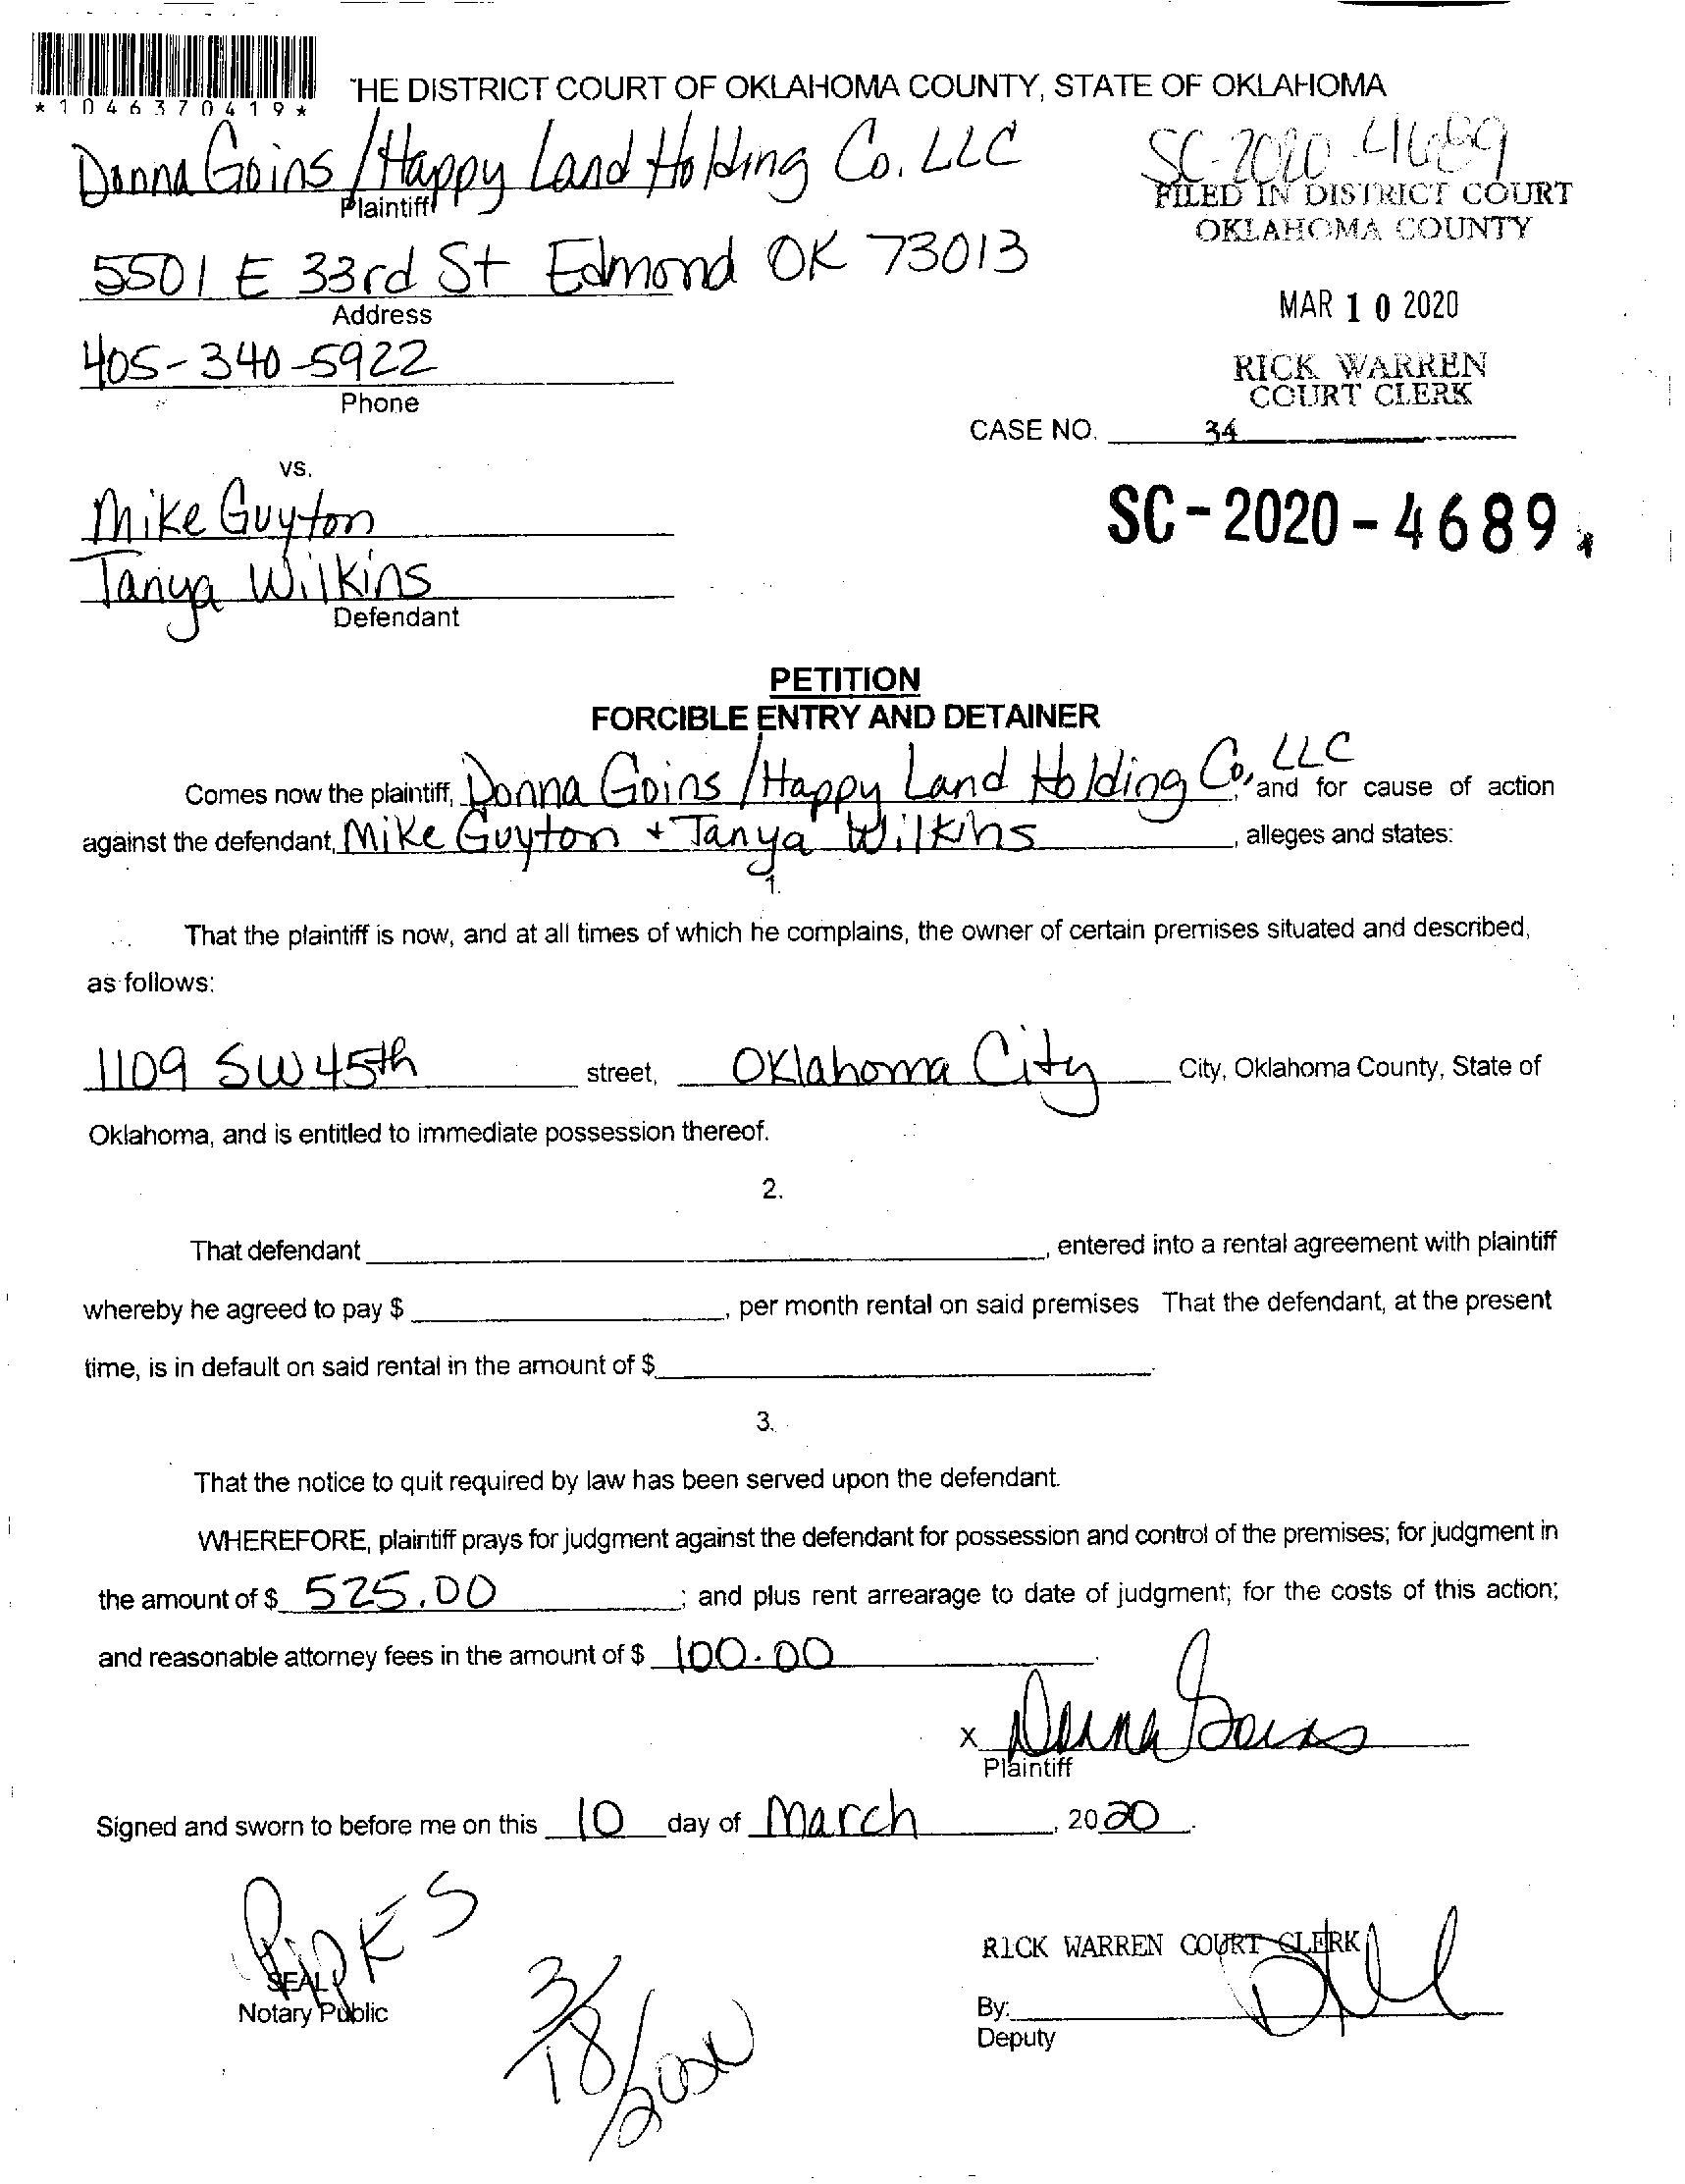 *1046370419*
THE DISTRICT COURT OF OKLAHOMA COUNTY, STATE OF OKLAHOMA
Donna Goins / Happy Land Holding Co. LLC
Plaintiff
SC-2020-4689
FILED IN DISTRICT COURT
OKLAHOMA COUNTY
5501 E 33rd St Edmond OK 73013
Address
MAR 10 2020
405-340-5922
Phone
RICK WARREN
COURT CLERK
CASE NO. 34
vs.
Mike Guyton
SC-2020-4689
Tanya Wilkins
Defendant
PETITION
FORCIBLE ENTRY AND DETAINER
Comes now the plaintiff, Donna Goins / Happy Land Holding Co, LLC, and for cause of action
against the defendant, Mike Guyton + Tanya Wilkins, alleges and states:
1.
That the plaintiff is now, and at all times of which he complains, the owner of certain premises situated and described,
as follows:
1109 SW 45th street, Oklahoma City City, Oklahoma County, State of
Oklahoma, and is entitled to immediate possession thereof.
2.
That defendant , entered into a rental agreement with plaintiff
whereby he agreed to pay $ , per month rental on said premises That the defendant, at the present
time, is in default on said rental in the amount of $ .
3.
That the notice to quit required by law has been served upon the defendant.
WHEREFORE, plaintiff prays for judgment against the defendant for possession and control of the premises; for judgment in
the amount of $ 525.00 ; and plus rent arrearage to date of judgment; for the costs of this action;
and reasonable attorney fees in the amount of $ 100.00 .
x Donna Goins
Plaintiff
Signed and sworn to before me on this 10 day of March , 2020.
SEAL
Notary Public
3/18/2020
RICK WARREN COURT CLERK
By:
Deputy